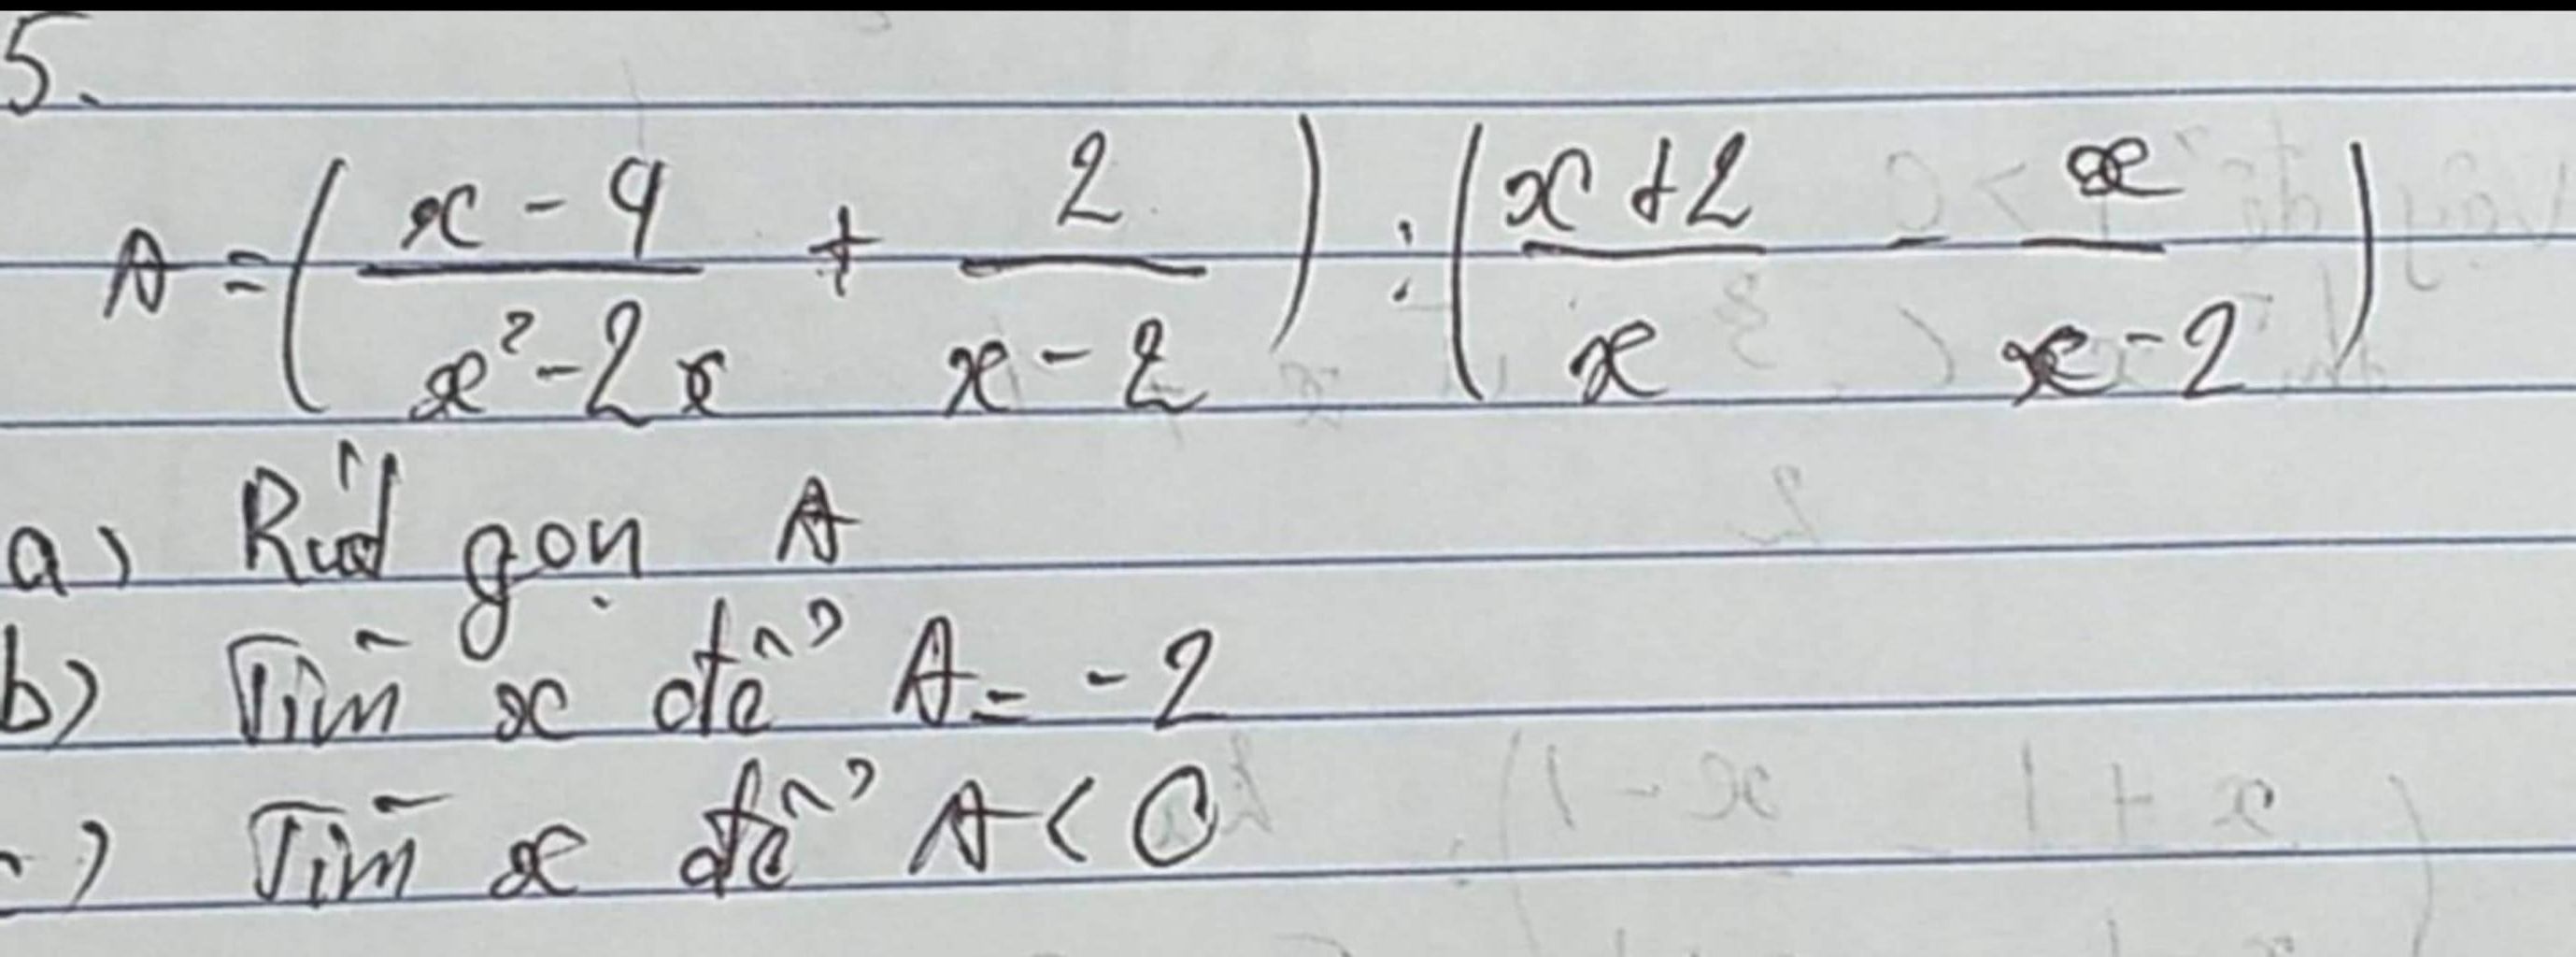 5.
A = ( \frac{x - 4}{x² - 2x} + \frac{2}{x - 2} ) : ( \frac{x + 2}{x} - \frac{x}{x - 2} )
a) Rút gọn A
b) Tìm x để A = -2
) Tìm x để A < 0